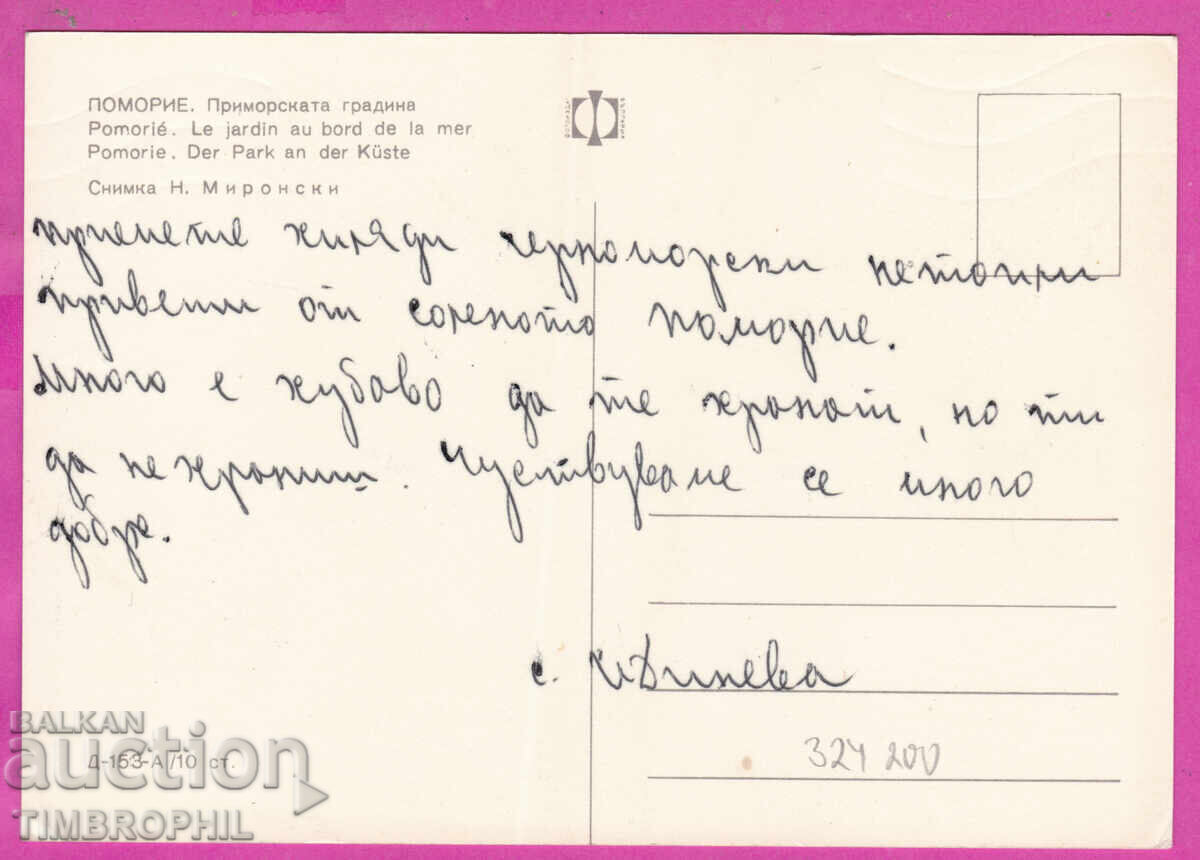 ПОМОРИЕ. Приморската градина
Pomorié. Le jardin au bord de la mer
Pomorie. Der Park an der Küste
Снимка Н. Миронски
ФОТОИЗДАТ
БЪЛГАРИЯ
приемете хиляди черноморски
привети от соленото Поморие.
Много е хубаво да те хранят, но ти
да не храниш. Чуствуваме се много
добре.
с.
324 200
Д-153-А/10 ст.
BALKAN
auction
TIMBROPHIL